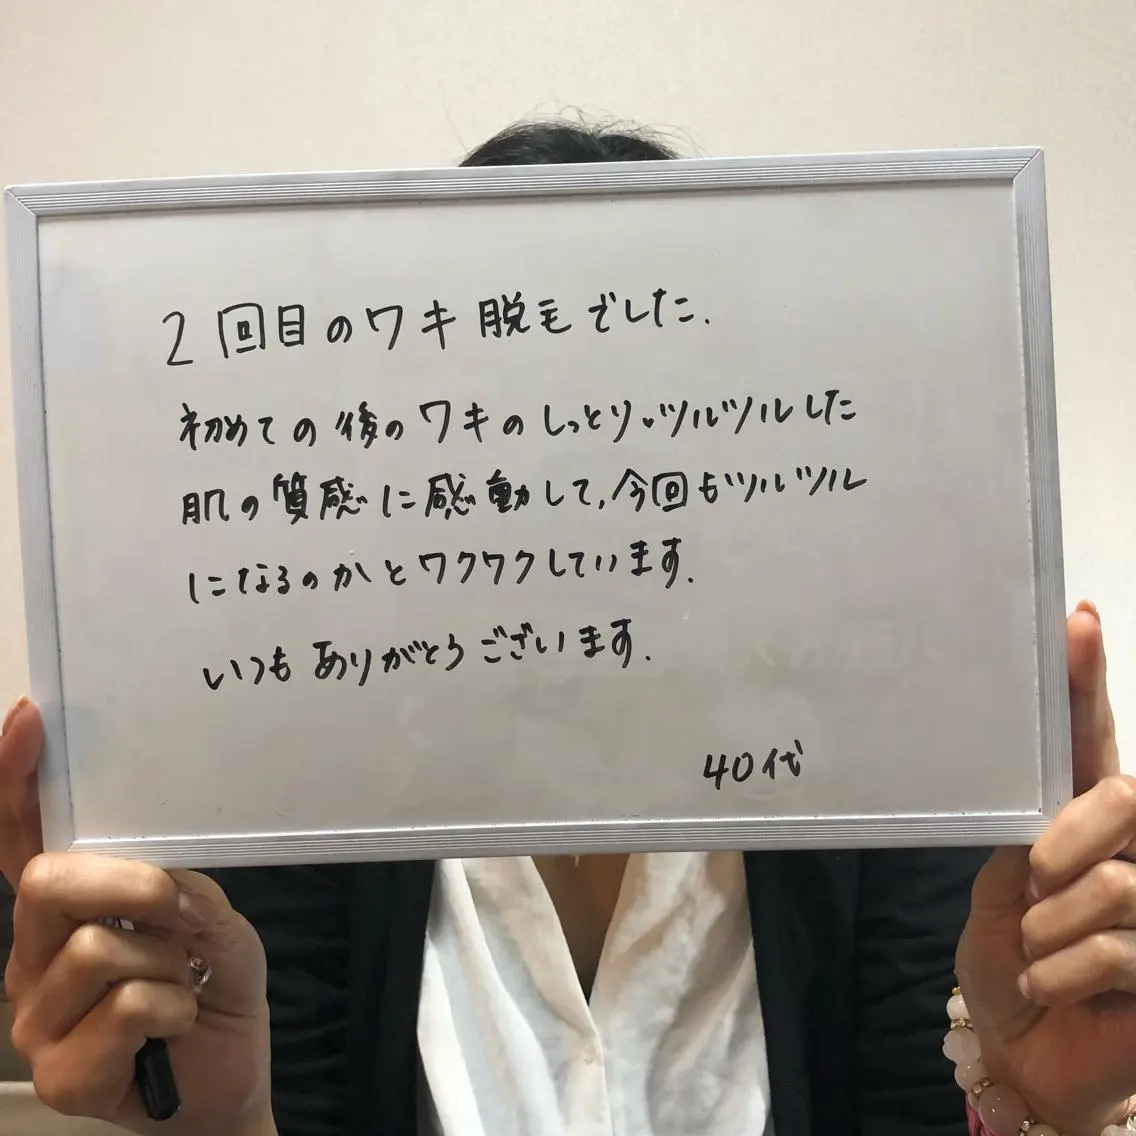 2回目のワキ脱毛でした.
初めての後のワキのしっとり、ツルツルした
肌の質感に感動して、今回もツルツル
になるのかとワクワクしています.
いつもありがとうございます.
40代